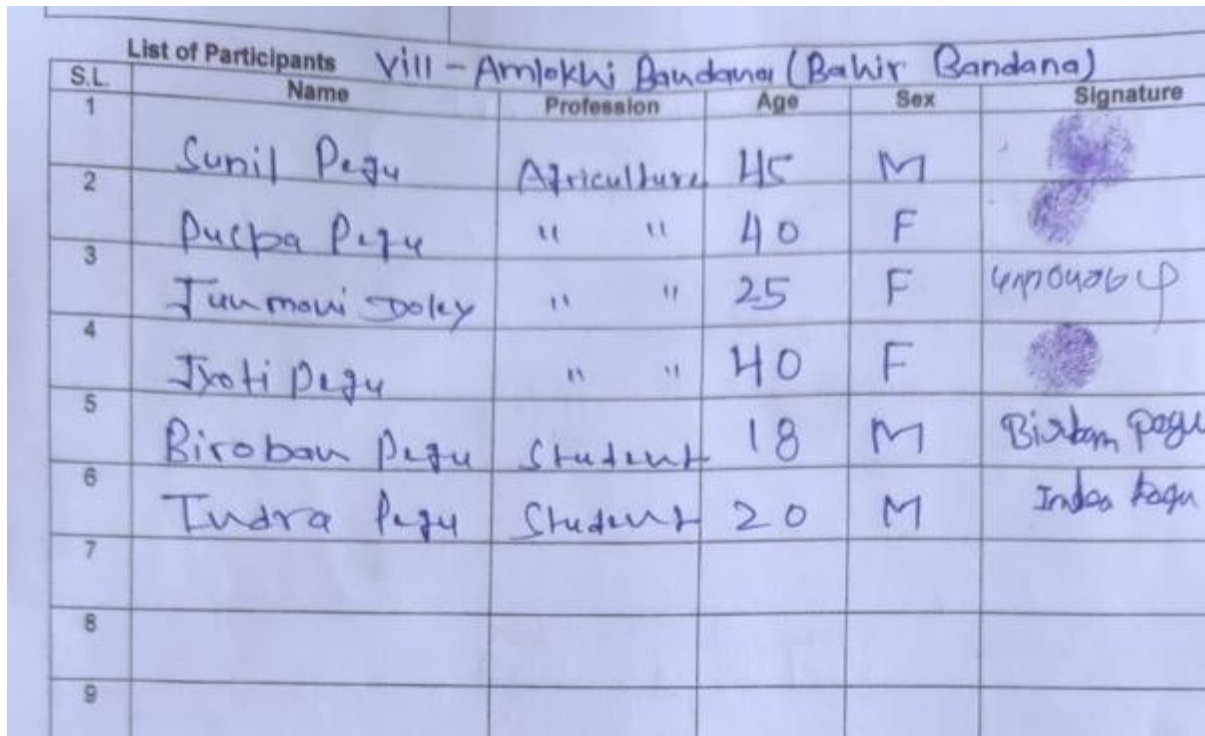 List of Participants Vill - Amlokhi Bandana (Bahir Bandana)
S.L. Name Profession Age Sex Signature
1 Sunil Pegu Agriculture 45 M
2 Puspa Pegu " " 40 F
3 Junmoni Doley " " 25 F
4 Jyoti Pegu " " 40 F
5 Biroban Pegu Student 18 M Pegu
6 Indra Pegu Student 20 M Pegu
7
8
9